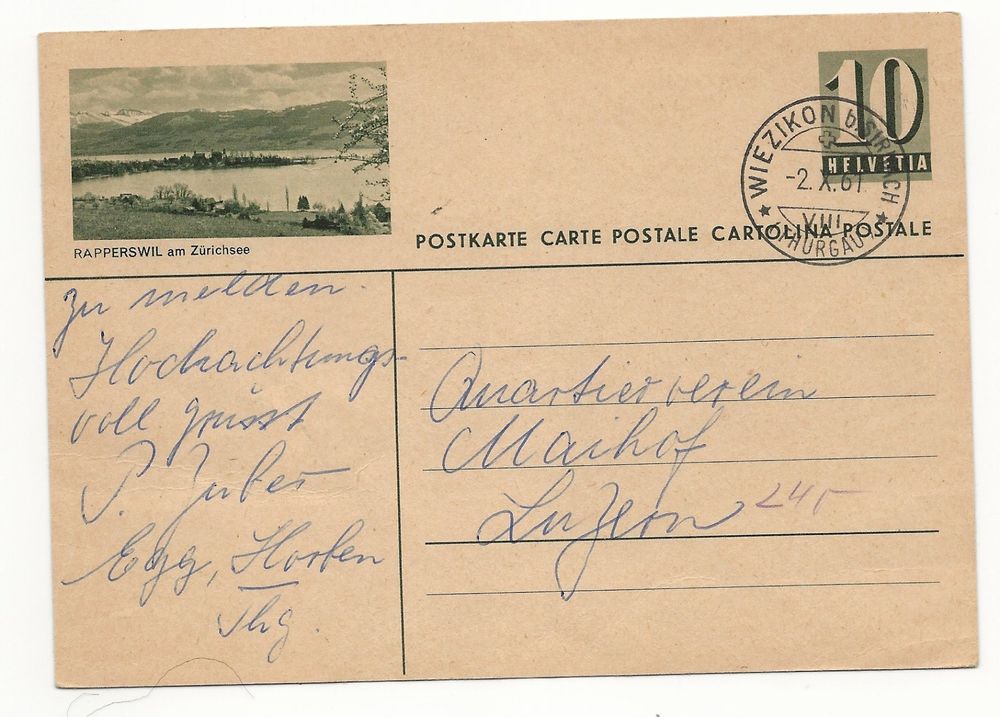 RAPPERSWIL am Zürichsee
10
HELVETIA
WIEZIKON b. SIRNACH
-2.X.61
VIII
(THURGAU)
POSTKARTE CARTE POSTALE CARTOLINA POSTALE
zu melden.
Hochachtungs-
voll grüsst
P. Huber
Egg, Horben
Thg.
Quartierverein
Maihof
Luzern